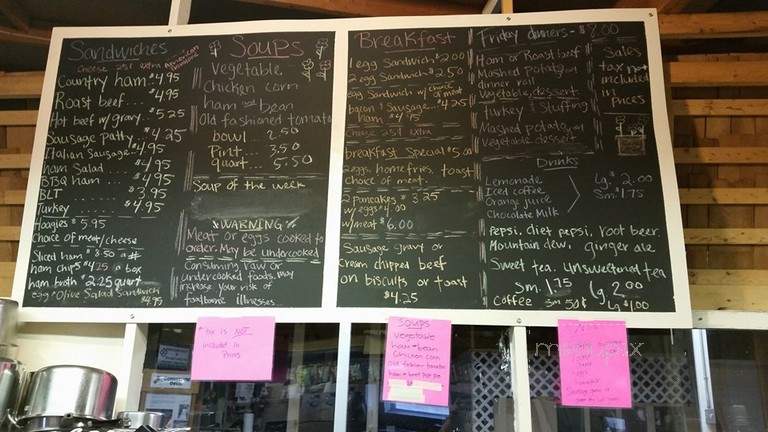 Sandwiches
cheese 25¢ extra American
Country ham $4.95
Roast beef.... $4.95
Hot beef w/gravy.. $5.25
Sausage patty... $4.25
Italian Sausage.. $4.95
ham Salad.... $4.95
BBQ ham.... $4.95
BLT.... $3.95
Turkey.... $4.95
Hoagies $5.95
Choice of meat/cheese
Sliced ham $8.50 a #
ham chips $4.25 a box
ham broth $2.25 quart
egg + Olive Salad Sandwich
$4.95
Soups
Vegetable
Chicken corn
ham and bean
Old fashioned tomato
bowl ... 2.50
Pint... 3.50
quart... 5.50
Soup of the week
WARNING
Meat or eggs cooked to
order, May be undercooked
Consuming raw or
undercooked foods may
increase your risk of
foodborne illnesses
Breakfast
1 egg Sandwich $2.00
2 egg Sandwich $2.50
egg Sandwich w/choice of a meat
bacon + Sausage... $4.25
ham $4.95
Cheese 25¢ extra
breakfast Special $5.00
2 eggs, homefries, toast
Choice of meat.
2 pancakes $3.25
w/eggs $4.00
w/meat $6.00
Sausage gravy or
cream chipped beef
on biscuits or toast
$4.25
Friday dinners - $8.00
Ham or Roast beef
Mashed Potato
dinner roll
Vegetable, dessert
turkey & Stuffing
Mashed potato
Vegetable dessert
Sales
tax not
included
in
Prices
Drinks
Lemonade
Iced coffee
Orange juice
Chocolate Milk
Lg. $2.00
Sm. $1.75
Pepsi, diet pepsi, root beer.
Mountain dew, ginger ale
Sweet tea, unsweetened tea
Sm. 1.75 Lg 2.00
Coffee Sm 50¢ Lg $1.00
* tax is NOT
included in
Prices
Soups
vegetable
ham + bean
Chicken corn
old fashion tomato
menupix